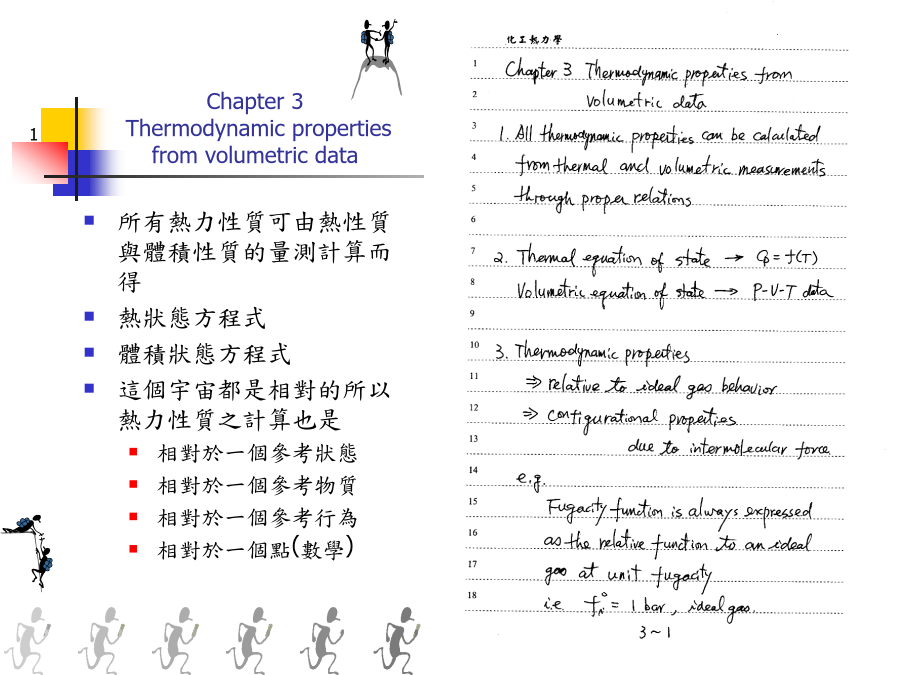 1
Chapter 3
Thermodynamic properties
from volumetric data
所有熱力性質可由熱性質
與體積性質的量測計算而
得
熱狀態方程式
體積狀態方程式
這個宇宙都是相對的所以
熱力性質之計算也是
相對於一個參考狀態
相對於一個參考物質
相對於一個參考行為
相對於一個點(數學)
化工熱力學
1 Chapter 3 Thermodynamic properties from
2 volumetric data
3 1. All thermodynamic properties can be calculated
4 from thermal and volumetric measurements
5 through proper relations
6
7 2. Thermal equation of state → Cp = f(T)
8 Volumetric equation of state → P-V-T data
9
10 3. Thermodynamic properties
11 ⇒ relative to ideal gas behavior
12 ⇒ configurational properties
13 due to intermolecular force
14 e.g.
15 Fugacity function is always expressed
16 as the relative function to an ideal
17 gas at unit fugacity
18 i.e. fᵢ° = 1 bar, ideal gas.
3~1